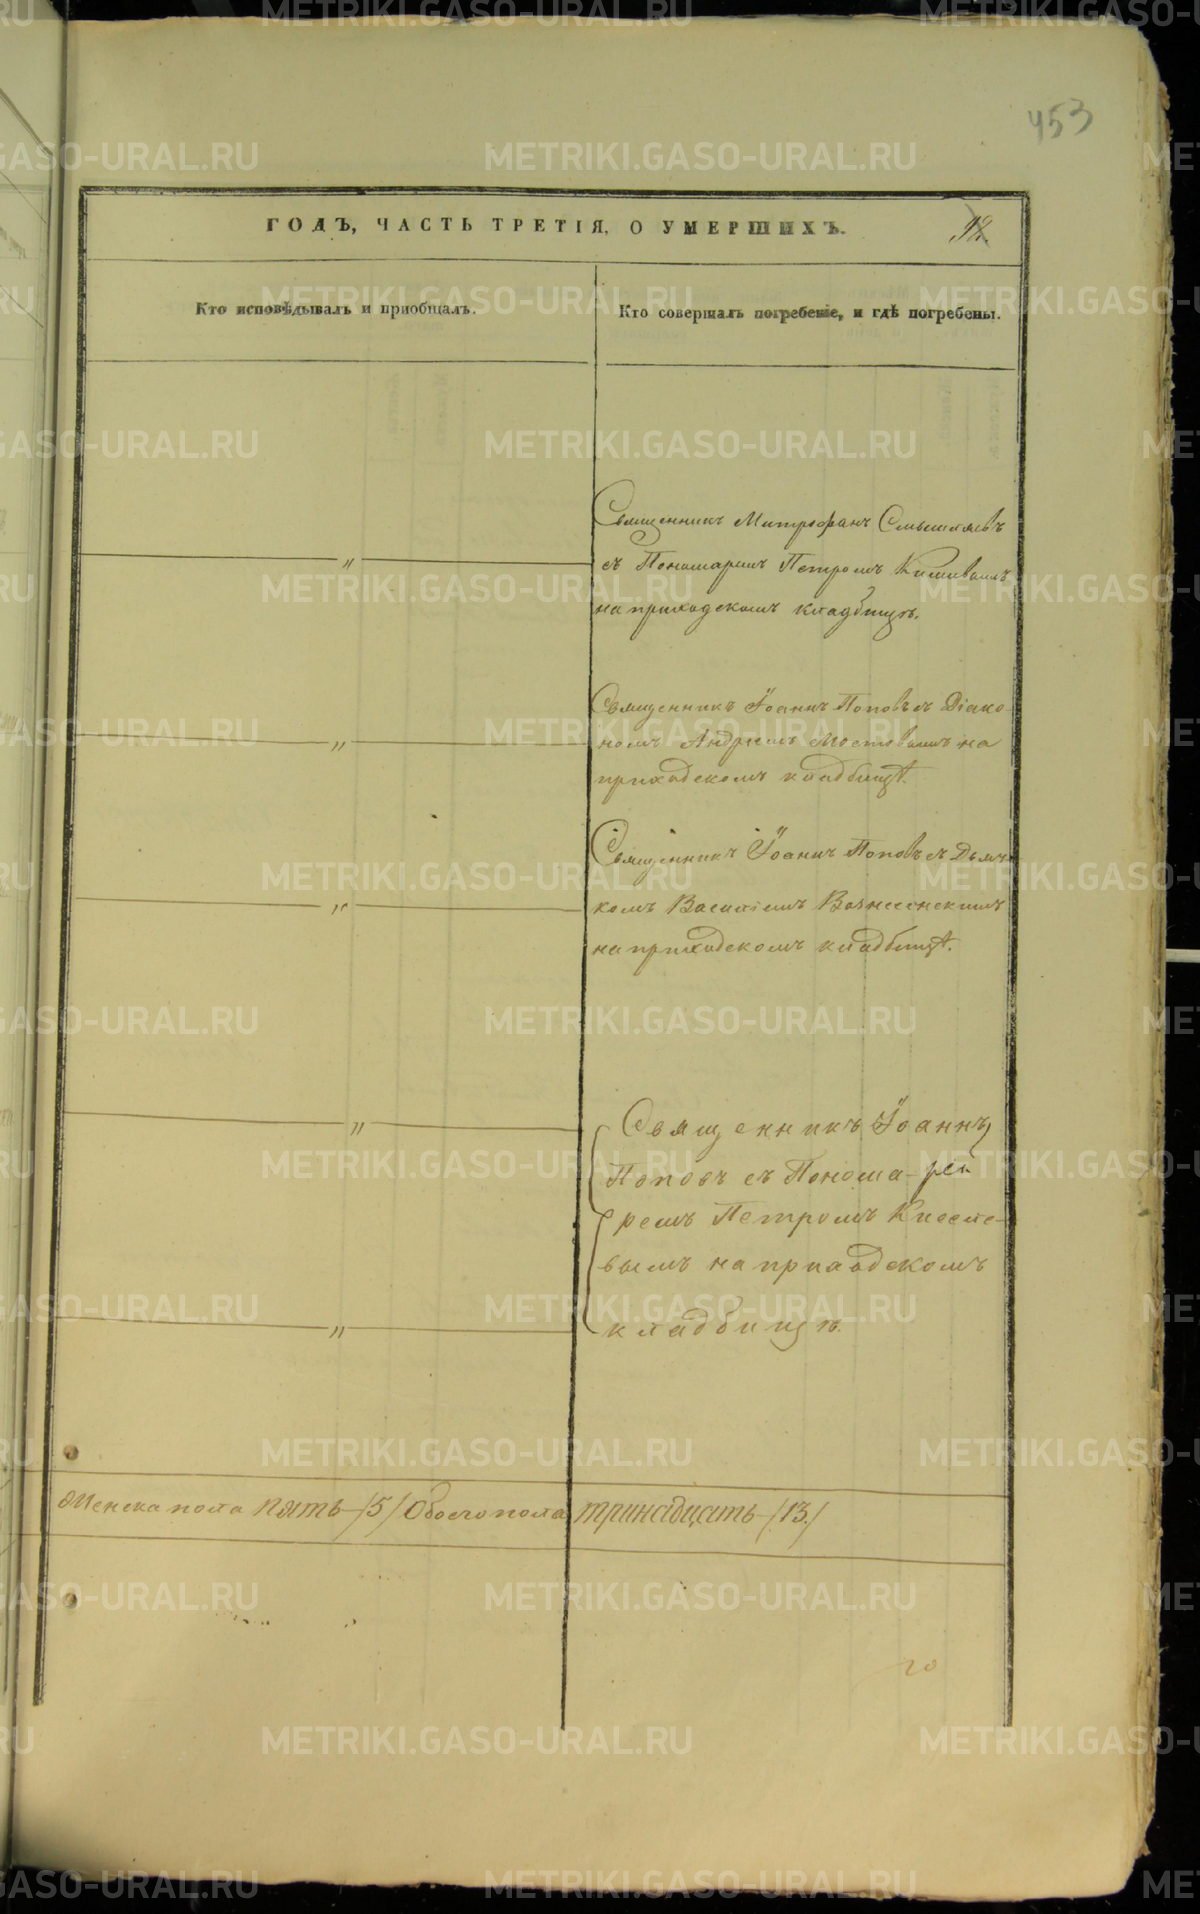 453
ГОДЪ, ЧАСТЬ ТРЕТІЯ, О УМЕРШИХЪ.
Кто исповѣдывалъ и пріобщалъ.
Кто совершалъ погребеніе, и гдѣ погребены.
Священникъ Митрофанъ Смышляевъ
съ Пономаремъ Петромъ
на приходскомъ кладбищѣ.
Священникъ Іоаннъ Поповъ съ Діако-
номъ Андреемъ Мостовымъ на
приходскомъ кладбищѣ.
Священникъ Іоаннъ Поповъ съ Дьяч-
комъ Василіемъ Вознесенскимъ
на приходскомъ кладбищѣ.
Священникъ Іоаннъ
Поповъ съ Понома-
ремъ Петромъ Киселе-
вымъ на приходскомъ
кладбищѣ.
Женска пола пять /5/ Обоего пола тринадцать /13./
METRIKI.GASO-URAL.RU